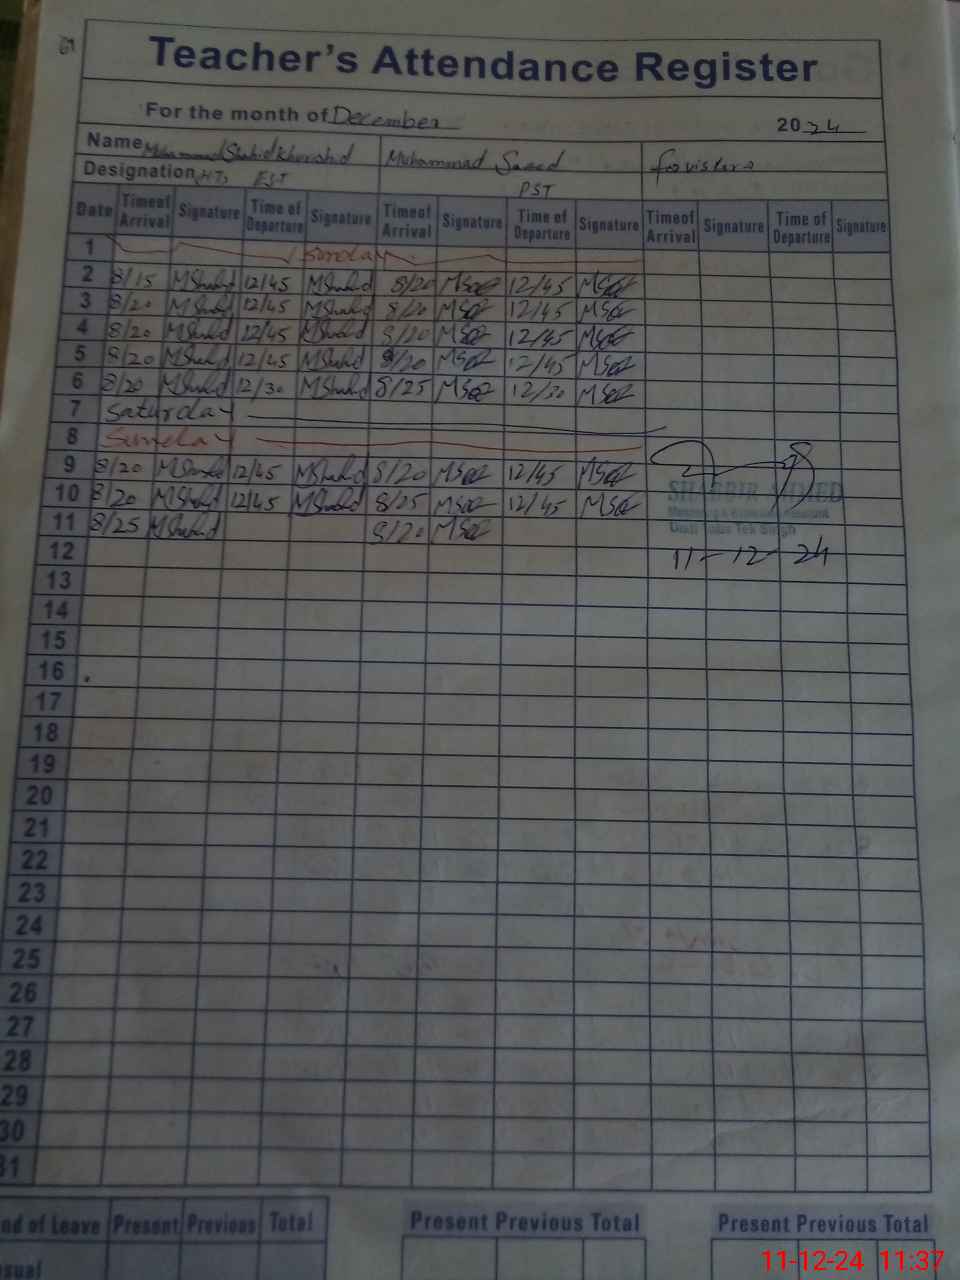 Teacher's Attendance Register
For the month of December 2024
Name Muhammad Shahid Khurshid Muhammad Saeed for visters
Designation HT, EST PST
Date Timeof Arrival Signature Time of Departure Signature Timeof Arrival Signature Time of Departure Signature Timeof Arrival Signature Time of Departure Signature
1 Sunday
2 8/15 MShahid 12/45 MShahid 8/20 12/45
3 8/20 MShahid 12/45 MShahid 8/20 12/45
4 8/20 MShahid 12/45 MShahid 8/20 12/45
5 8/20 MShahid 12/45 MShahid 8/20 12/45
6 8/20 MShahid 12/30 MShahid 8/25 12/30
7 Saturday
8 Sunday
9 8/20 MShahid 12/45 MShahid 8/20 12/45
10 8/20 MShahid 12/45 MShahid 8/25 12/45
SHABBIR AHMED
11 8/25 MShahid 8/20
Distt Toba Tek Singh
12 11-12-24
13
14
15
16
17
18
19
20
21
22
23
24
25
26
27
28
29
30
31
nd of Leave Present Previous Total Present Previous Total Present Previous Total
sual
11-12-24 11:37